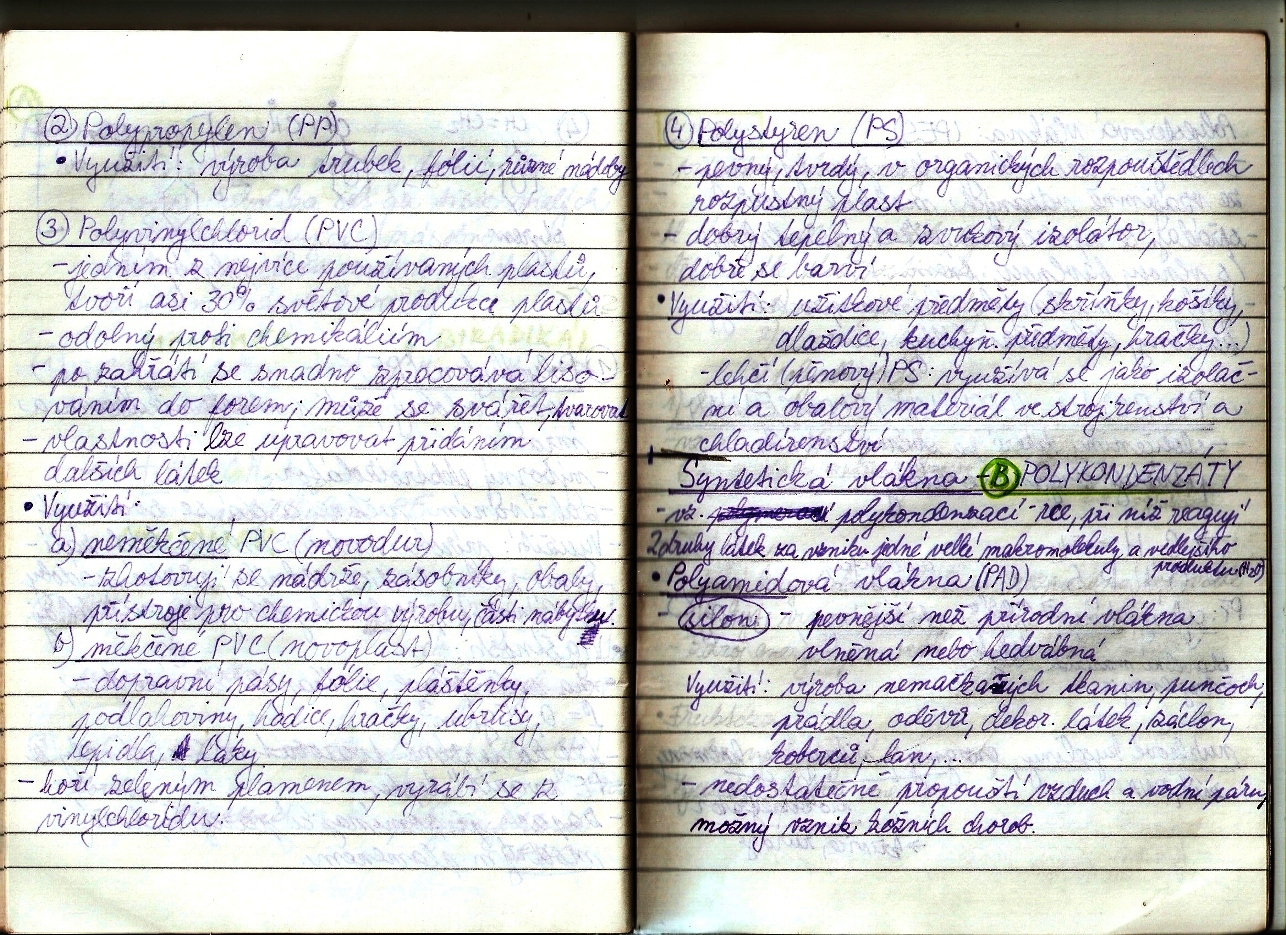 ② Polypropylen (PP)
• Využití: výroba trubek, fólií, různé nádoby
③ Polyvinylchlorid (PVC)
- jedním z nejvíce používaných plastů,
tvoří asi 30% světové produkce plastů
- odolný proti chemikáliím
- po zahřátí se snadno zpracovává liso-
váním do forem; může se svářet, tvarovat
- vlastnosti lze upravovat přidáním
dalších látek
• Využití:
a) neměkčené PVC (novodur)
- zhotovují se nádrže, zásobníky, obaly,
přístroje pro chemickou výrobu, části nábytku.
b) měkčené PVC (novoplast)
- dopravní pásy, fólie, pláštěnky,
podlahoviny, hadice, hračky, ubrusy,
lepidla, laky.
- hoří zeleným plamenem, vyrábí se z
vinylchloridu.
④ Polystyren (PS)
- pevný, tvrdý, v organických rozpouštědlech
rozpustný plast
- dobrý tepelný a zvukový izolátor,
dobře se barví
• Využití: užitkové předměty (skříňky, košíky,
dlaždice, kuchyň. předměty, hračky...)
- lehčí (pěnový) PS: využívá se jako izolač-
ní a obalový materiál ve strojírenství a
chladírenství
Syntetická vlákna - Ⓑ POLYKONDENZÁTY
- vz. polykondenzací - rce, při níž reagují
2 druhy látek za vzniku jedné velké makromolekuly a vedlejšího
produktu (H2O)
• Polyamidová vlákna (PAD)
- silon - pevnější než přírodní vlákna
vlněná nebo hedvábná
Využití: výroba nemačkavých tkanin, punčoch,
prádla, oděvů, dekor. látek, záclon,
koberců, lan,...
- nedostatečně propouští vzduch a vodní páru,
možný vznik kožních chorob.